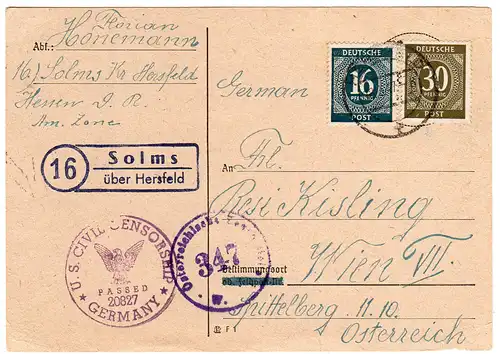 Florian
Abs.: Hönemann
16) Solms Kr Hersfeld
Hessen D. R.
Am. Zone
16
Solms
über Hersfeld
U.S. CIVIL CENSORSHIP
PASSED
20827
GERMANY
Österreichische
347
W.
German
DEUTSCHE
16
PFENNIG
POST
DEUTSCHE
30
PFENNIG
POST
An
Frl.
Resi Kisling
Bestimmungsort
Wien VII.
Spittelberg 11. 10.
Österreich
F 1